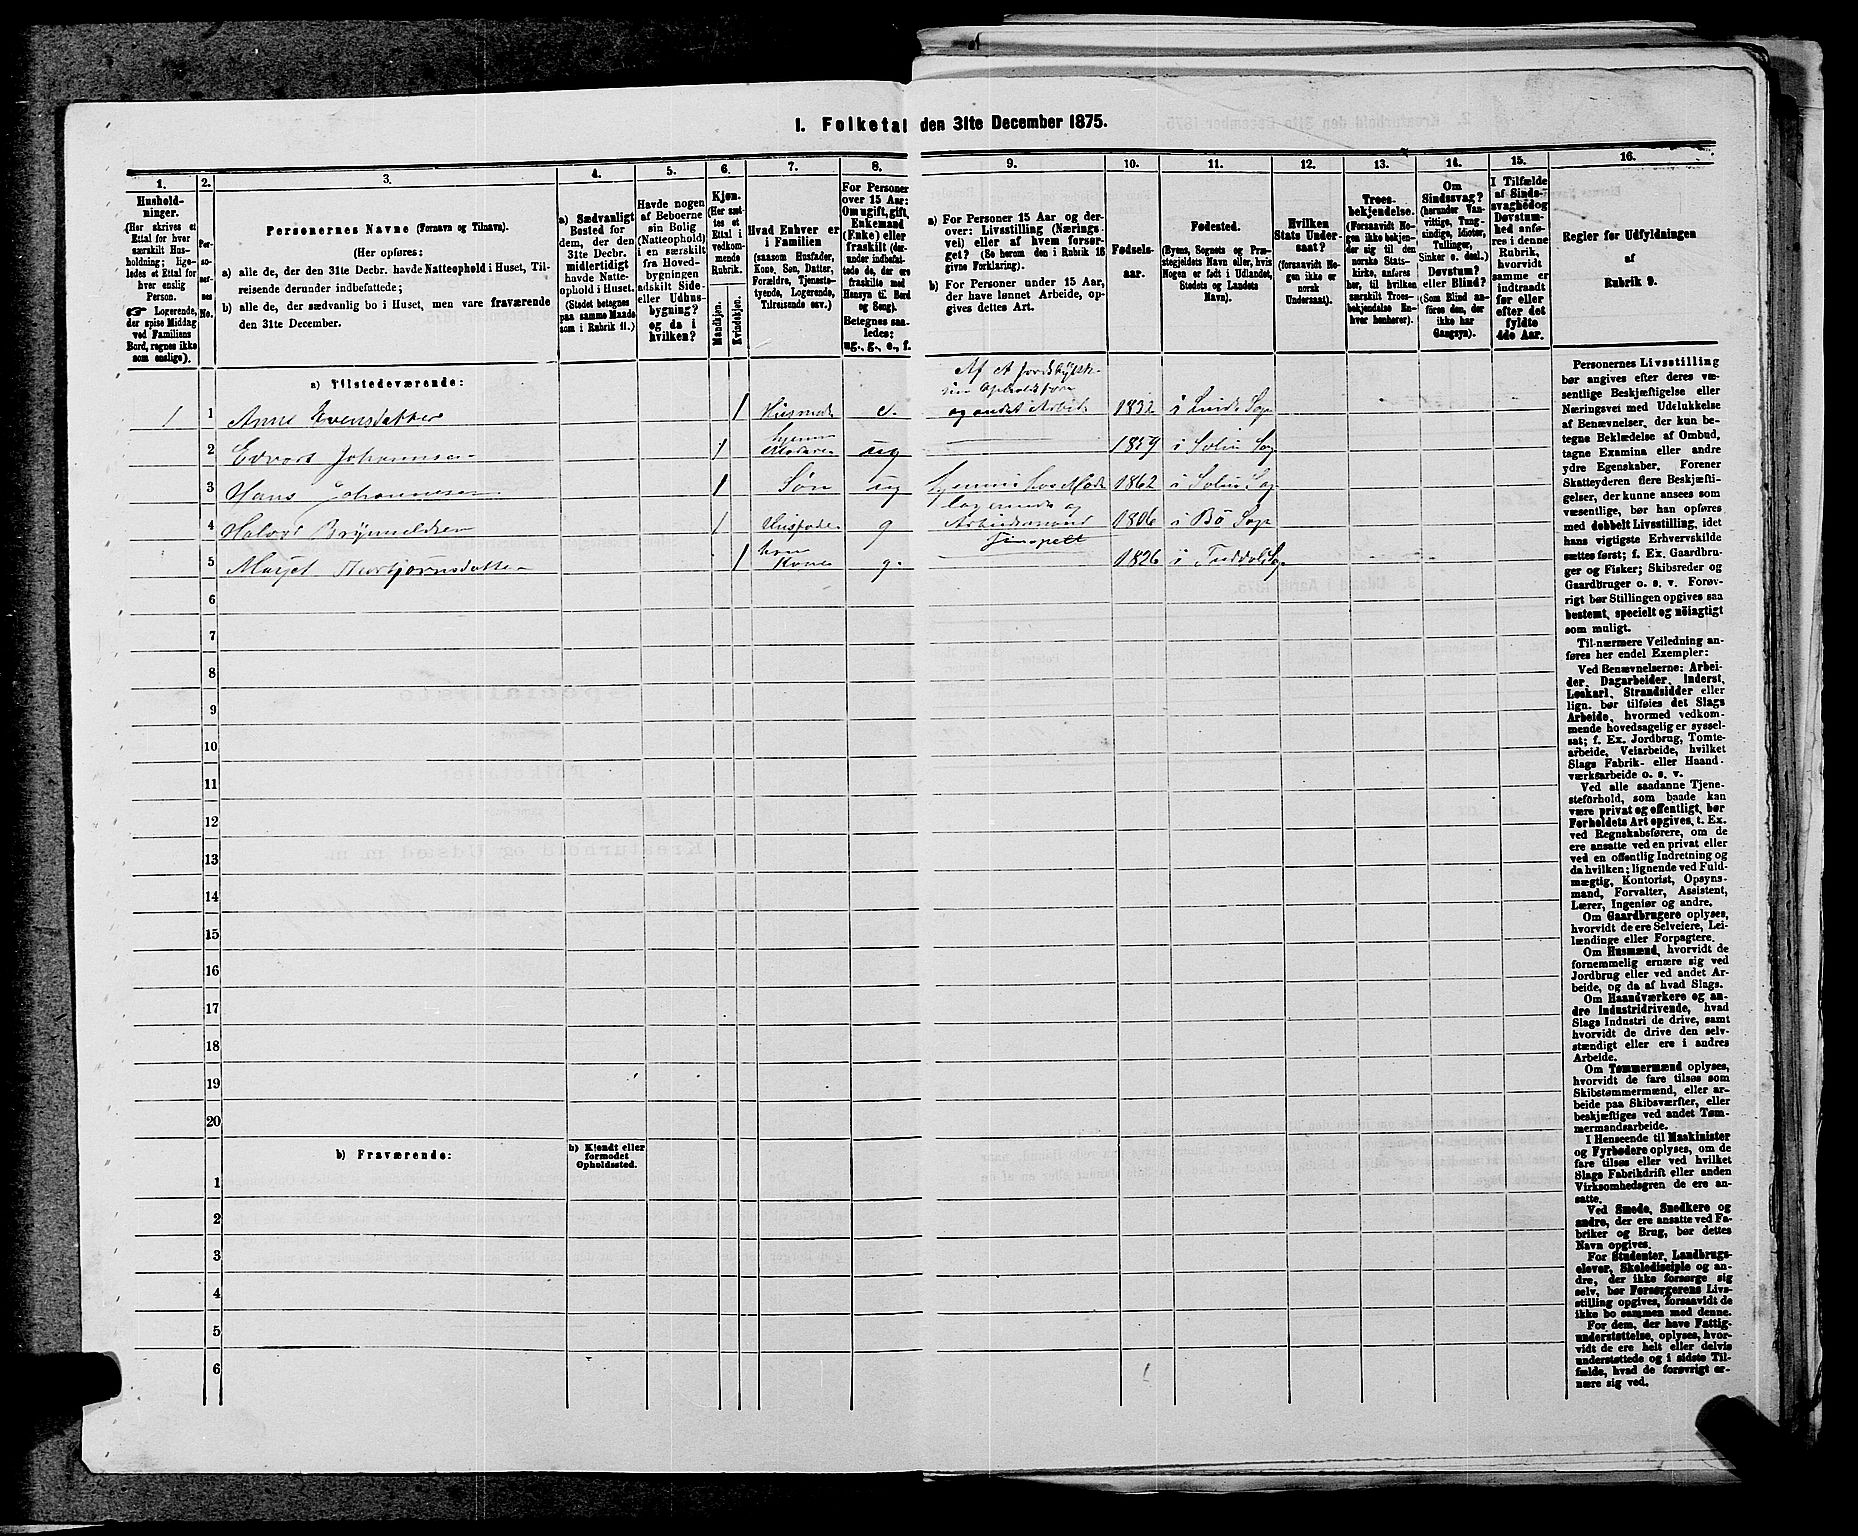 1. Folketal den 31te December 1875.
1.
2.
3.
4.
5.
6.
7.
8.
9.
10.
11.
12.
13.
14.
15.
16.
Hushold-
ninger.
(Her skrives et
Ettal for hver
særskilt Hus-
holdning; lige-
ledes et Ettal for
hver enslig
Person.
Logerende,
der spise Middag
ved Familiens
Bord, regnes ikke
som enslige).
Per-
soner-
nes
No.
Personernes Navne (Fornavn og Tilnavn).
(Her opføres:
a) alle de, der den 31te Decbr. havde Natteophold i Huset, Til-
reisende derunder indbefattede;
b) alle de, der sædvanlig bo i Huset, men vare fraværende
den 31te December.
a) Sædvanligt
Bosted for
dem, der den
31te Decbr.
midlertidigt
havde Natte-
ophold i Huset.
(Stedet betegnes
paa samme Maade
som i Rubrik 11.)
Havde nogen
af Beboerne
sin Bolig
(Natteophold)
i en særskilt
fra Hoved-
bygningen
adskilt Side-
eller Udhus-
bygning?
og da i
hvilken?
Kjøn.
(Her sæt-
tes et
Ettal i
vedkom-
mende
Rubrik.)
Mandkjøn.
Kvindekjøn.
Hvad Enhver er
i Familien
(saasom Husfader,
Kone, Søn, Datter,
Forældre, Tjeneste-
tyende, Logerende,
Tilreisende osv.)
For Personer
over 15 Aar:
Om ugift, gift,
Enkemand
(Enke) eller
fraskilt (der-
under indbefat-
tede de, der ere
fraskilte med
Hensyn til Bord
og Seng).
Betegnes saa-
ledes:
ug., g., e., f.
a) For Personer 15 Aar og der-
over: Livsstilling (Nærings-
vei) eller af hvem forsør-
get? (Se herom den i Rubrik 16
givne Forklaring).
b) For Personer under 15 Aar,
der have lønnet Arbeide, op-
gives dettes Art.
Fødsels-
aar.
Fødested.
(Byens, Sognets og Præ-
stegjeldets Navn eller, hvis
Nogen er født i Udlandet,
Stedets og Landets
Navn).
Hvilken
Stats Under-
saat?
(forsaavidt No-
gen ikke er
norsk
Undersaat).
Troes-
bekjendelse.
(Forsaavidt No-
gen ikke bekjen-
der sig til den
norske Stats-
kirke, anføres
her, til hvilken
særskilt Troes-
bekjendelse En-
hver henhører).
Om
Sindssvag?
(herunder Van-
vittige, Tung-
sindige, Idioter,
Tullinger,
Sinker o. desl.)
Døvstum?
eller Blind?
(Som Blind an-
føres den, der
ikke har
Gangsyn).
I Tilfælde
af Sinds-
svaghed og
Døvstum-
hed anfø-
res i denne
Rubrik,
hvorvidt
samme er
indtraadt
før eller
efter det
fyldte
4de Aar.
Regler for Udfyldningen
af
Rubrik 9.
a) Tilstedeværende:
1 1 Anne Evensdatter 1 e. og andet Arbeide 1832 i Lunde Sogn
2 Edvart Johannsen 1 ug 1859 i Solum Sog
3 Hans Johannesen 1 Søn ug hjemme hos Mod 1862 i Solum Sog
4 Halvor Brynnildsen 1 Husfader g logerende og Arbeidsmand 1806 i Bø Sogn
5 1 hans Kone g. 1826 i Tuddal Sogn
6
7
8
9
10
11
12
13
14
15
16
17
18
19
20
b) Fraværende:
b) Kjendt eller
formodet
Opholdssted.
1
2
3
4
5
6
Personernes Livsstilling
bør angives efter deres væ-
sentlige Beskjæftigelse eller
Næringsvei med Udelukkelse
af Benævnelser, der kun be-
tegne Beklædelse af Ombud,
tagne Examina eller andre
ydre Egenskaber. Forener
Skatteyderen flere Beskjæfti-
gelser, der kunne ansees som
væsentlige, bør han opføres
med dobbelt Livsstilling, idet
hans vigtigste Erhvervskilde
sættes først; f. Ex. Gaardbru-
ger og Fisker; Skibsreder og
Gaardbruger o. s. v. Forøv-
rigt bør Stillingen opgives saa
bestemt, specielt og nöiagtigt
som muligt.
Til nærmere Veiledning an-
føres her endel Exempler:
Ved Benævnelserne: Arbei-
der, Dagarbeider, Inderst,
Løskarl, Strandsidder eller
lign. bør tilføies det Slags
Arbeide, hvormed vedkom-
mende hovedsagelig er syssel-
sat; f. Ex. Jordbrug, Tomte-
arbeide, Veiarbeide, hvilket
Slags Fabrik- eller Haand-
værksarbeide o. s. v.
Ved alle saadanne Tjene-
steforhold, som baade kan
være privat og offentligt, bør
Forholdets Art opgives, t. Ex.
ved Regnskabsførere, om de
ere ansatte ved en privat eller
ved en offentlig Indretning og
da hvilken; lignende ved Fuld-
mægtig, Kontorist, Opsyns-
mand, Forvalter, Assistent,
Lærer, Ingeniør og andre.
Om Gaardbrugere oplyses,
hvorvidt de ere Selveiere, Lei-
lændinge eller Forpagtere.
Om Husmænd, hvorvidt de
fornemmelig ernære sig ved
Jordbrug eller ved andet Ar-
beide, og da af hvad Slags.
Om Haandværkere og an-
dre Industridrivende, hvad
Slags Industri de drive, samt
hvorvidt de drive den selv-
stændigt eller ere i andres
Arbeide.
Om Tømmermænd oplyses,
hvorvidt de fare tilsøs som
Skibstømmermænd, eller ar-
beide paa Skibsværfter, eller
beskjæftiges ved andet Tøm-
mermandsarbeide.
I Henseende til Maskinister
og Fyrbødere oplyses, om de
fare tilsøs eller ved hvilket
Slags Fabrikdrift eller anden
Virksomhedsgren de ere an-
satte.
Ved Smede, Snedkere og
andre, der ere ansatte ved Fa-
briker og Brug, bør dettes
Navn opgives.
For Studenter, Landbrugs-
elever, Skoledisciple og an-
dre, der ikke forsørge sig
selv, bør Forsørgerens Livs-
stilling opgives, forsaavidt de
ikke bo sammen med denne.
For dem, der have Fattig-
understøttelse, oplyses, hvor-
vidt de ere helt eller delvis
understøttede og i sidste Til-
fælde, hvad de forøvrigt er-
nære sig ved.